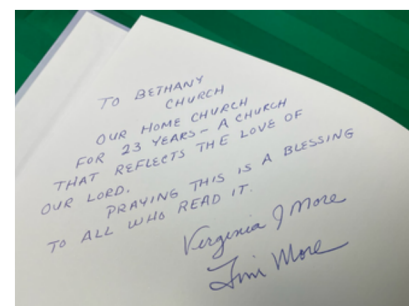 TO BETHANY
CHURCH
OUR HOME CHURCH
FOR 23 YEARS – A CHURCH
THAT REFLECTS THE LOVE OF
OUR LORD.
PRAYING THIS IS A BLESSING
TO ALL WHO READ IT.
Virginia J More
Jim More